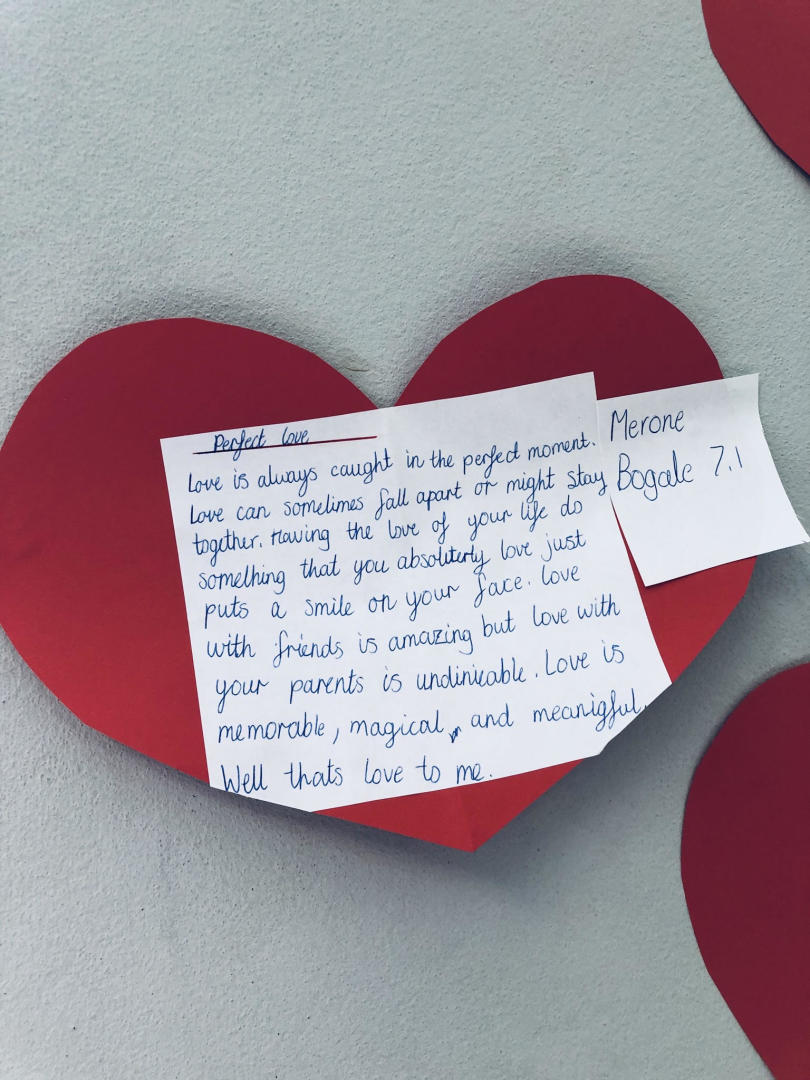 Perfect love
Love is always caught in the perfect moment.
Love can sometimes fall apart or might stay
together. Having the love of your life do
something that you absoluterly love just
puts a smile on your face. Love
with friends is amazing but love with
your parents is undinicable. Love is
memorable, magical, and meanigful.
Well thats love to me.
Merone
Bogale 7.1